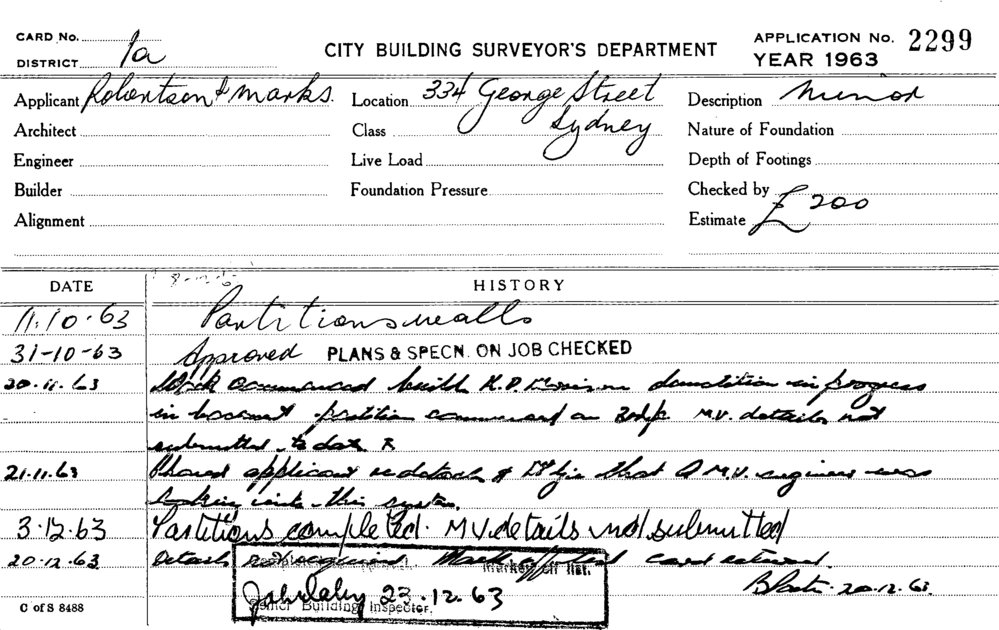 CARD No.
DISTRICT 1a
CITY BUILDING SURVEYOR'S DEPARTMENT
APPLICATION No. 2299
YEAR 1963
Applicant Robertson & Marks.
Location 334 George Street
Sydney
Description Minor
Architect
Class
Nature of Foundation
Engineer
Live Load
Depth of Footings
Builder
Foundation Pressure
Checked by
Alignment
Estimate £200
DATE
HISTORY
11.10.63 Partitions walls
31-10-63 Approved PLANS & SPECN. ON JOB CHECKED
20.11.63 Work commenced build demolition in progress
in basement partition commenced on M.V. details not
submitted to date
21.11.63 Phoned applicant that a M.V. engineer was
looking into this system.
3.12.63 Partitions completed. M.V. details not submitted
20.12.63 Details Mark off list card returned.
Marked off list.
20.12.63
23.12.63
Senior Building Inspector.
C of S 8488